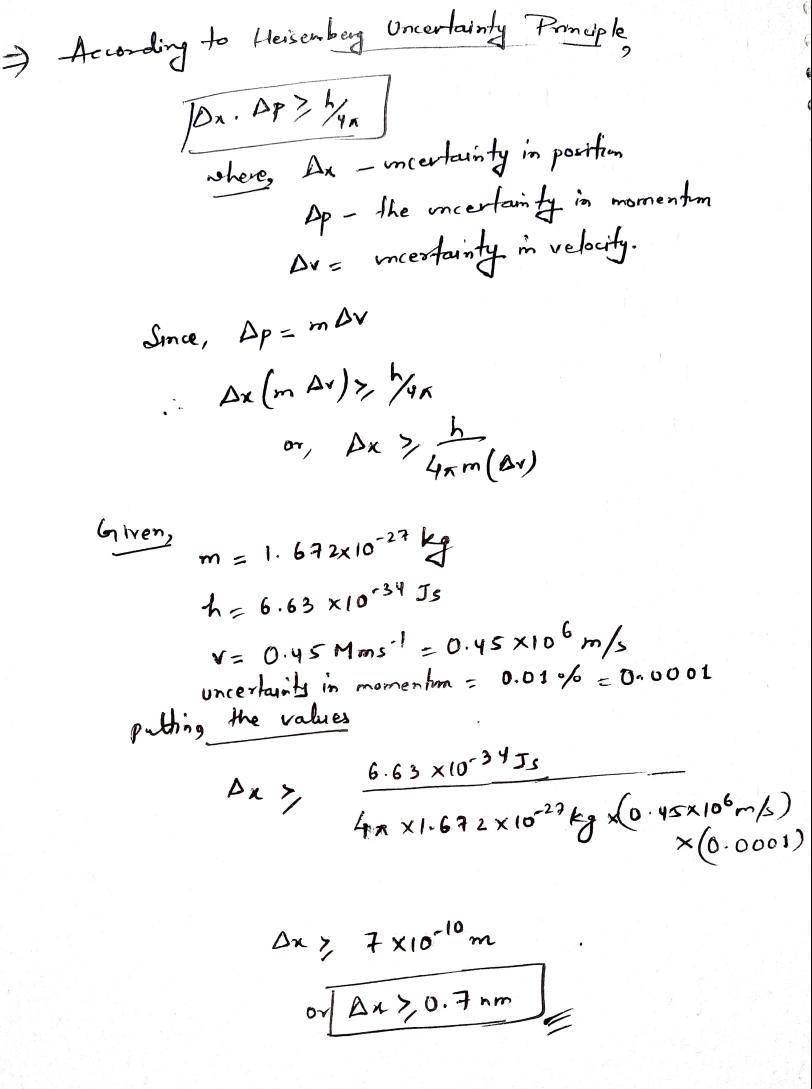 ⇒ According to Heisenberg Uncertainty Principle,
Δx. Δp ≥ h/4π
where, Δx – uncertainty in position
Δp – the uncertainty in momentum
Δv = uncertainty in velocity.
Since, Δp = m Δv
∴ Δx (m Δv) ≥ h/4π
or, Δx ≥ h / 4πm(Δv)
Given,
m = 1.672×10⁻²⁷ kg
h = 6.63 ×10⁻³⁴ Js
v = 0.45 Mms⁻¹ = 0.45 ×10⁶ m/s
uncertainty in momentum = 0.01 % = 0.0001
putting the values
Δx ≥ 6.63 ×10⁻³⁴ Js / 4π ×1.672×10⁻²⁷ kg ×(0.45×10⁶ m/s)
×(0.0001)
Δx ≥ 7 ×10⁻¹⁰ m
or Δx ≥ 0.7 nm